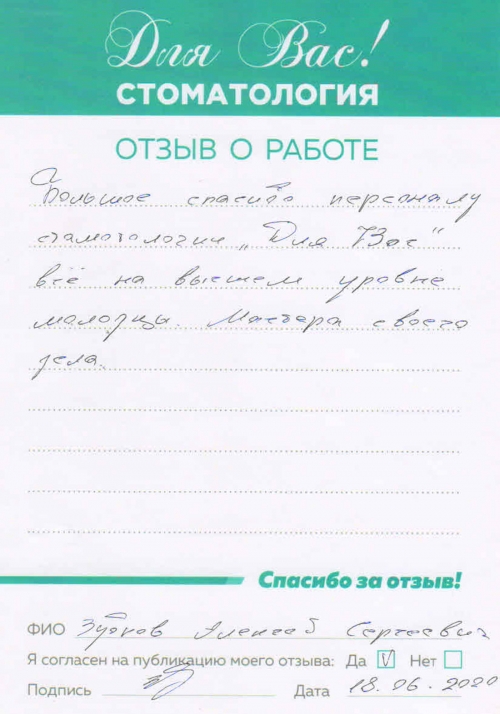 Для Вас!
СТОМАТОЛОГИЯ
ОТЗЫВ О РАБОТЕ
Большое спасибо персоналу
стамотологии „Для Вас“
всё на высшем уровне
молодцы. Мастера своего
дела.
Спасибо за отзыв!
ФИО Зубков Алексей Сергеевич
Я согласен на публикацию моего отзыва: Да V Нет
Подпись Дата 18.06.2020